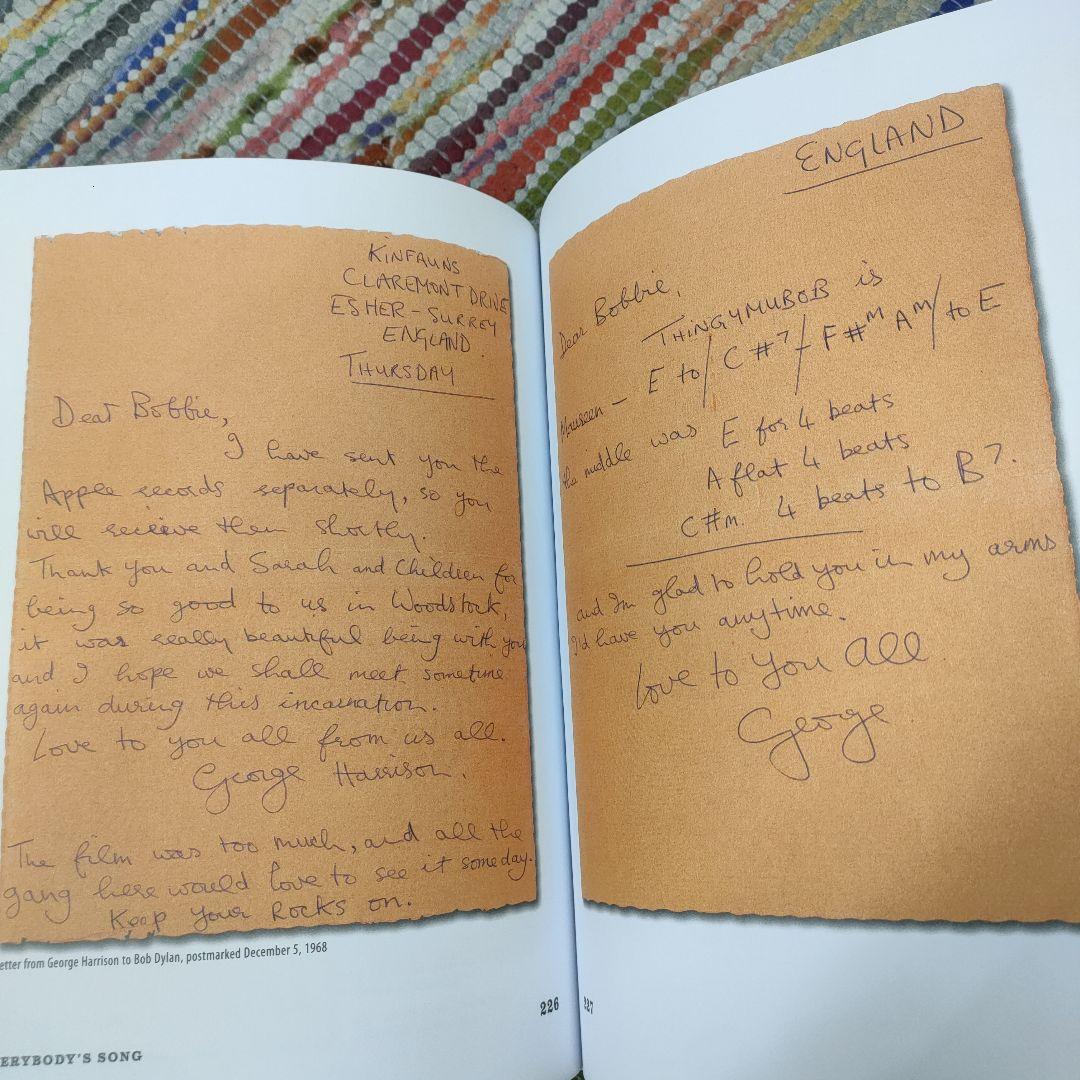 KINFAUNS
CLAREMONT DRIVE
ESHER - SURREY
ENGLAND.
THURSDAY
Dear Bobbie,
I have sent you the
Apple records separately, so you
will receive them shortly.
Thank you and Sarah and Children for
being so good to us in Woodstock,
it was really beautiful being with you
and I hope we shall meet sometime
again during this incarnation.
Love to you all from us all.
George Harrison.
The film was too much, and all the
gang here would love to see it some day.
Keep your Rocks on.
etter from George Harrison to Bob Dylan, postmarked December 5, 1968
226
ERYBODY'S SONG
ENGLAND
Dear Bobbie,
THINGYMUBOB is
E to / C#7 / F#m Am / to E
the middle was E for 4 beats
A flat 4 beats
C#m. 4 beats to B7.
and Im glad to hold you in my arms
I'd have you anytime.
Love to you all
George
227